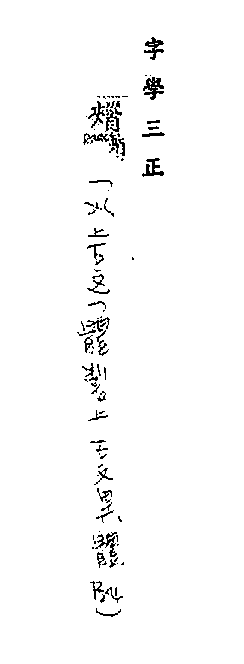 字學三正
(以上古文(體製上古文異體